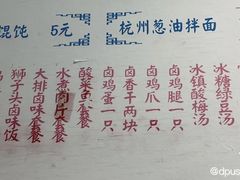 馄饨 5元 杭州葱油拌面
狮子头卤味饭
大排卤味套餐
水煮肉片套餐
酸菜鱼套餐
卤鸡蛋一只
卤香干两块
卤鸡爪一只
卤鸡腿一只
冰镇酸梅汤
冰糖绿豆汤
@dpus